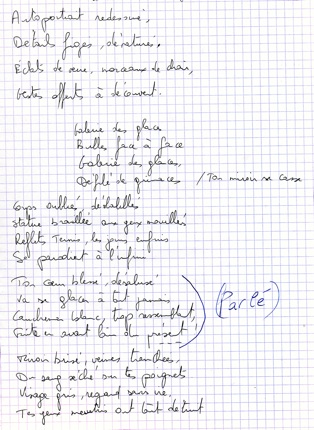 Autoportrait redessiné,
Détails figés, dénaturés,
Eclats de verre, morceaux de chair,
Gestes offerts à découvert.
Galerie des glaces
Bulles face à face
Galerie des glaces,
Défilé de grimaces / Ton miroir se casse
Corps oubliés, déshabillés
Statue braillée aux yeux mouillés
Reflets Ternis, les jours enfuis
Se perdent à l'infini
Ton cœur blessé, désabusé
Va se glacer à tout jamais
Cauchemar blanc, trop ressemblant,
Fuite en avant loin du présent
(Parlé)
Miroir brisé, veines tranchées,
Du sang séché sur tes poignets
Visage gris, regard sans vie,
Tes yeux meurtris ont tout détruit